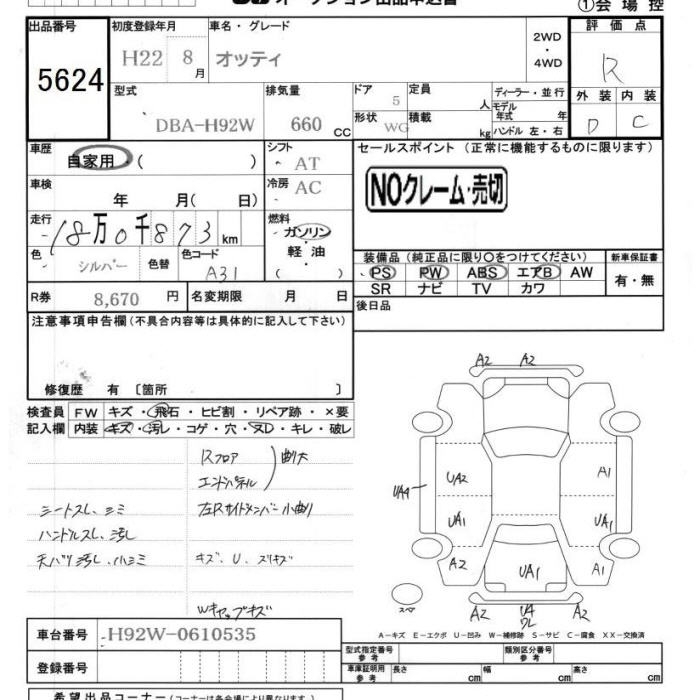 オークション出品申込書
①会場控
出品番号 5624
初度登録年月 H22 8月
車名・グレード オッティ
2WD・4WD
評価点 R
型式 DBA-H92W
排気量 660 CC
ドア 5
形状 WG
定員 人
積載 kg
ディーラー・並行
モデル年式 年
ハンドル 左・右
外装 D
内装 C
車歴 自家用・( )
シフト AT
セールスポイント (正常に機能するものに限ります)
NOクレーム・売切
車検 年 月( 日)
冷房 AC
走行 18万0千873 km
燃料 ガソリン・軽油 ( )
色 シルバー 色替
色コード A31
装備品(純正品に限り○をつけてください)
新車保証書
PS PW ABS エアB AW
SR ナビ TV カワ
有・無
R券 8,670 円
名変期限 月 日
後日品
注意事項申告欄(不具合内容等は具体的に記入して下さい)
修復歴 有 〔箇所 〕
検査員記入欄
FW キズ・飛石・ヒビ割・リペア跡・×要
内装 キズ・汚レ・コゲ・穴・ヌD・キレ・破レ
Rフロア
エンドパネル
曲大
シートスレ、シミ
左Rサイドメンバー小曲り
ハンドルスレ、汚レ
天バリ汚レ、小シミ
キズ、U、スリキズ
Wキャップキズ
A2 A2
UA2 A1
UA4
UA1 UA1
A2 UA1 A2
スペア
A2 UA ワレ A2
A-キズ E-エクボ U-凹み W-補修跡 S-サビ C-腐食 XX-交換済
車台番号 H92W-0610535
登録番号
型式指定番号 参考
類別区分番号 参考
車庫証明用 参考
長さ cm
幅 cm
高さ cm
希望出品コーナー(コーナーは各会場により異なります)